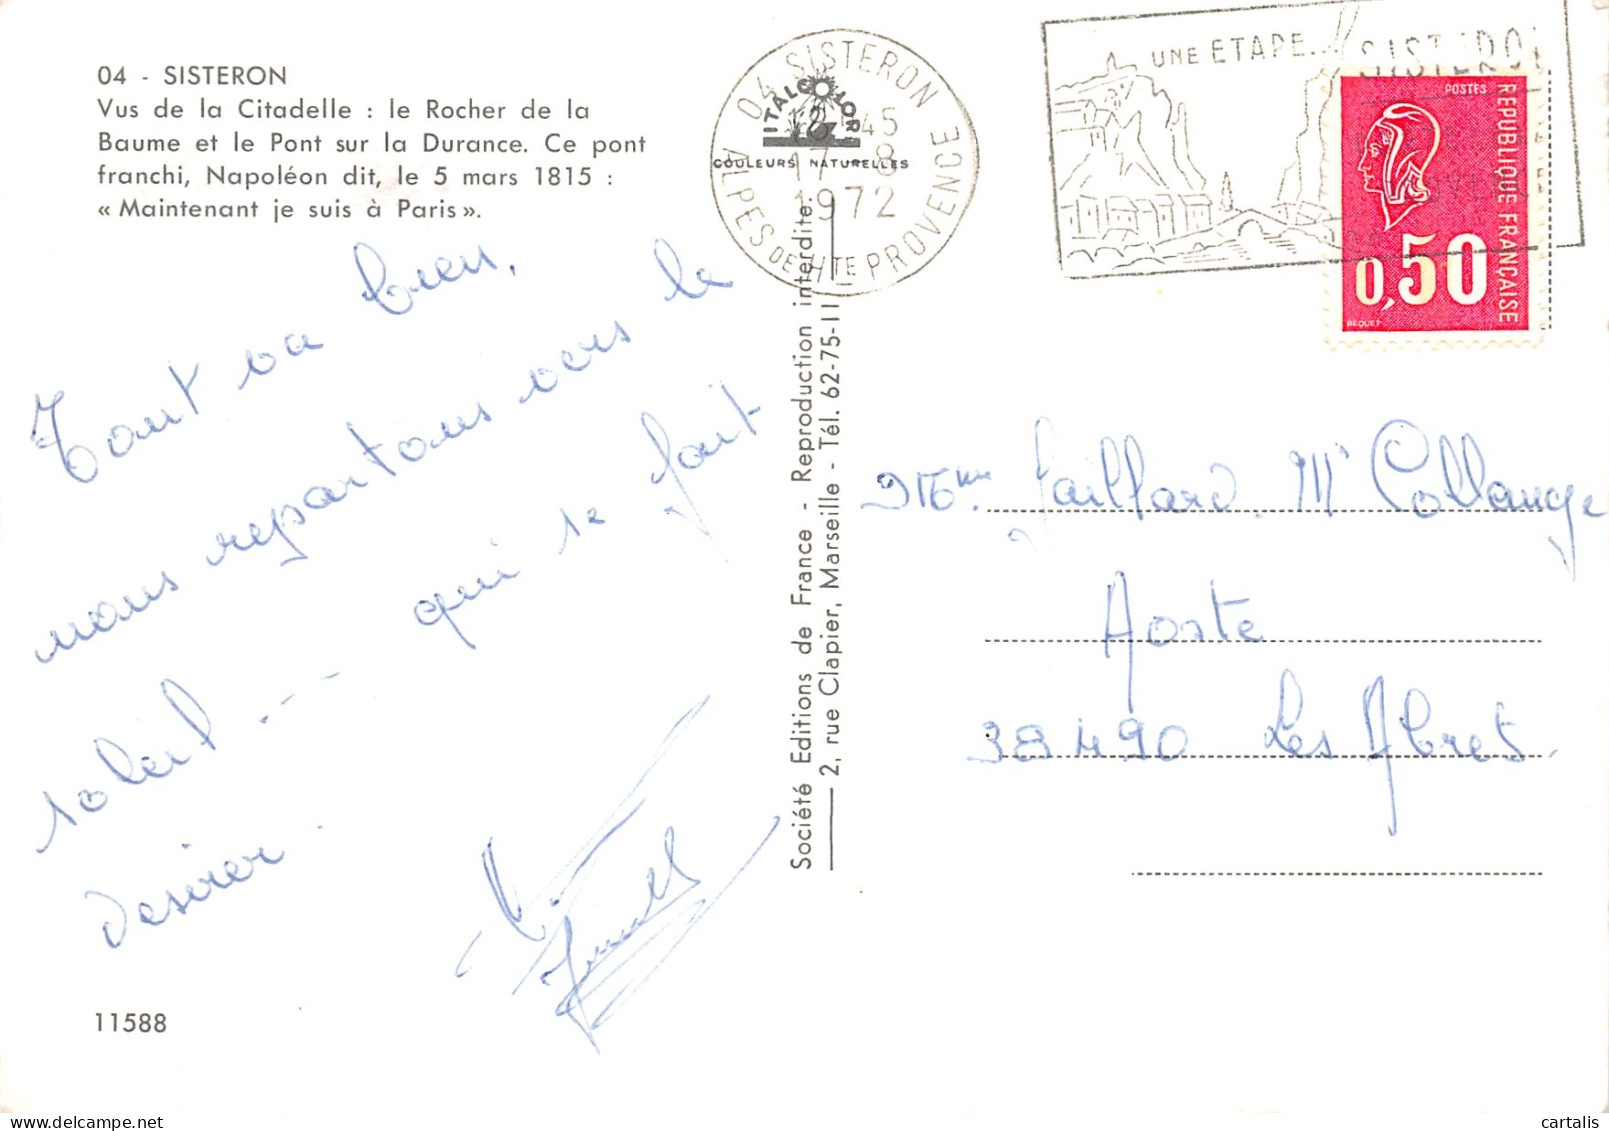 04 - SISTERON
Vus de la Citadelle : le Rocher de la
Baume et le Pont sur la Durance. Ce pont
franchi, Napoléon dit, le 5 mars 1815 :
« Maintenant je suis à Paris ».
Tout va bien,
nous repartons vers le
soleil --- qui se fait
désirer
11588
04 SISTERON
45
17-8
1972
ALPES DE HTE PROVENCE
ITALCOLOR
COULEURS NATURELLES
Société Editions de France - Reproduction interdite.
2, rue Clapier, Marseille - Tél. 62-75-11
UNE ETAPE...
SISTERON
POSTES
REPUBLIQUE FRANÇAISE
0,50
BEQUET
Jaillard. Collange
Aoste
38490 Les Abrets.
cartalis